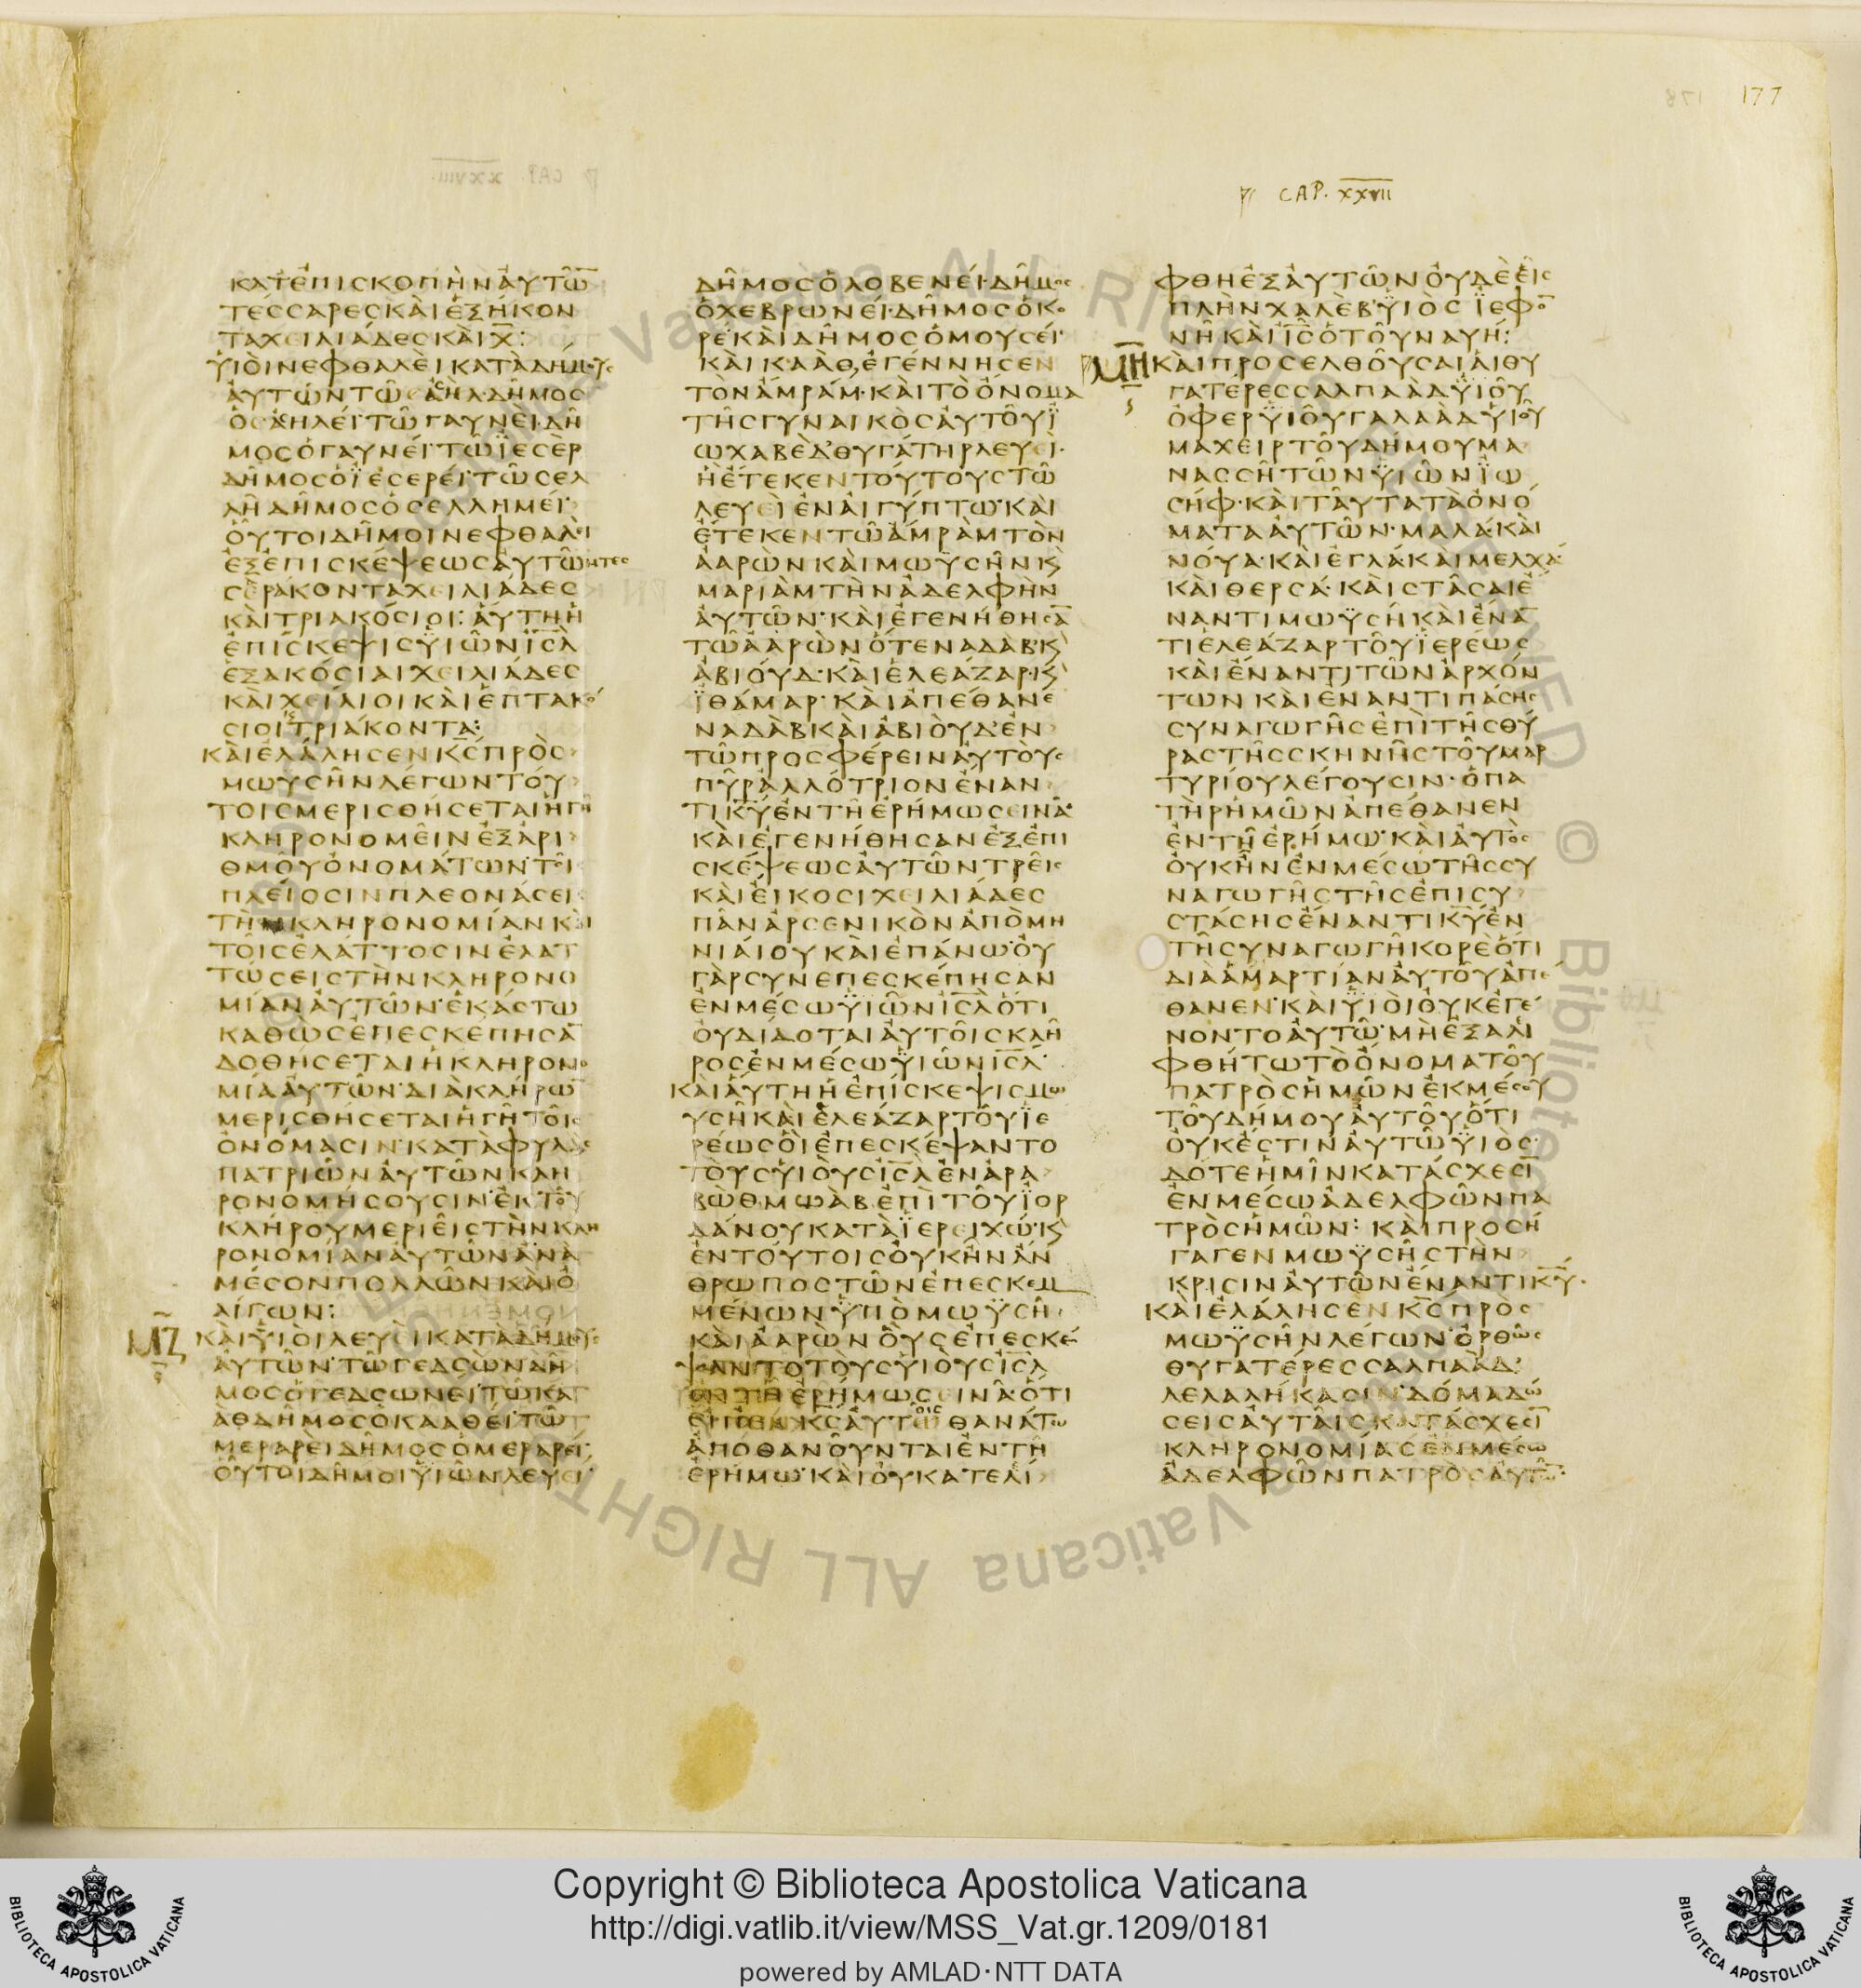 177
CAP. XXVII
ΚΑΤ ΕΠΙΣΚΟΠῊΝ ΑΥΤΩ̅
ΤΕΣΣΑΡΕΣΚΑΙΕΞΗΚΟΝ
ΤΑΧΕΙΛΙΑΔΕΣΚΑΙΧ̅:
ΫΙΟΙΝΕΦΘΑΛΕΙΚΑΤΑΔΗΜΟΥΣ
ΑΥΤΩΝΤΩ
ΤΩΓΑΥΝΕΙΔΗ
ΜΟΣΟΓΑΥΝΕΙ·ΤΩΪΕΣΕΡ
ΔΗΜΟΣΟΪΕΣΕΡΕΙ·ΤΩΣΕΛ
ΛΗΔΗΜΟΣΟΣΕΛΛΗΜΕΙ·
ΟΥΤΟΙΔΗΜΟΙΝΕΦΘΑΛΙ
ΕΞΕΠΙΣΚΕΨΕΩΣΑΥΤΩ̅
ΣΕΡΑΚΟΝΤΑΧΕΙΛΙΑΔΕΣ
ΚΑΙΤΡΙΑΚΟΣΙΟΙ:ΑΥΤΗΗ
ΕΠΙΣΚΕΨΙΣΫΙΩΝΙ̅Σ̅Λ̅
ΕΞΑΚΟΣΙΑΙΧΕΙΛΙΑΔΕΣ
ΚΑΙΧΕΙΛΙΟΙΚΑΙΕΠΤΑΚΟ
ΣΙΟΙΤΡΙΑΚΟΝΤΑ:
ΚΑΙΕΛΑΛΗΣΕΝΚ̅Σ̅ΠΡΟΣ
ΜΩΫΣΗΝΛΕΓΩΝΤΟΥ
ΤΟΙΣΜΕΡΙΣΘΗΣΕΤΑΙΗΓΗ
ΚΛΗΡΟΝΟΜΕΙΝΕΞΑΡΙ
ΘΜΟΥΟΝΟΜΑΤΩΝ·ΤΟΙ
ΠΛΕΙΟΣΙΝΠΛΕΟΝΑΣΕΙ
ΤΗΝΚΛΗΡΟΝΟΜΙΑΝΚΑΙ
ΤΟΙΣΕΛΑΤΤΟΣΙΝΕΛΑΤ
ΤΩΣΕΙΣΤΗΝΚΛΗΡΟΝΟ
ΜΙΑΝΑΥΤΩΝ·ΕΚΑΣΤΩ
ΚΑΘΩΣΕΠΕΣΚΕΠΗΣΑ̅
ΔΟΘΗΣΕΤΑΙΗΚΛΗΡΟΝΟ
ΜΙΑΑΥΤΩΝ·ΔΙΑΚΛΗΡΩ̅
ΜΕΡΙΣΘΗΣΕΤΑΙΗΓΗΤΟΙΣ
ΟΝΟΜΑΣΙΝ·ΚΑΤΑΦΥΛΑΣ
ΠΑΤΡΙΩΝΑΥΤΩΝΚΛΗ
ΡΟΝΟΜΗΣΟΥΣΙΝ·ΕΚΤΟΥ
ΚΛΗΡΟΥΜΕΡΙΕΙΣΤΗΝΚΛΗ
ΡΟΝΟΜΙΑΝΑΥΤΩΝΑΝΑ
ΜΕΣΟΝΠΟΛΛΩΝΚΑΙΟ
ΛΙΓΩΝ:
ΜΖ
ΚΑΙΫΙΟΙΛΕΥΕΙΚΑΤΑΔΗΜΟΥΣ
ΑΥΤΩΝ·ΤΩΓΕΔΣΩΝΔΗ
ΜΟΣΟΓΕΔΣΩΝΕΙ·ΤΩΚΑ
ΑΘΔΗΜΟΣΟΚΑΑΘΕΙ·ΤΩ
ΜΕΡΑΡΕΙΔΗΜΟΣΟΜΕΡΑΡΕΙ·
ΟΥΤΟΙΔΗΜΟΙΫΙΩΝΛΕΥΕΙ·
ΔΗΜΟΣΟΛΟΒΕΝΕΙ·ΔΗΜΟΣ
ΟΧΕΒΡΩΝΕΙ·ΔΗΜΟΣΟΚΟ
ΡΕ·ΚΑΙΔΗΜΟΣΟΜΟΥΣΕΙ·
ΚΑΙΚΑΑΘ,ΕΓΕΝΝΗΣΕΝ
ΤΟΝΑΜΡΑΜ·ΚΑΙΤΟΟΝΟΜΑ
ΤΗΣΓΥΝΑΙΚΟΣΑΥΤΟΥΪ
ΩΧΑΒΕΔ·ΘΥΓΑΤΗΡΛΕΥΕΙ·
ΗΕΤΕΚΕΝΤΟΥΤΟΥΣΤΩ
ΛΕΥΕΙΕΝΑΙΓΥΠΤΩ·ΚΑΙ
ΕΤΕΚΕΝΤΩΑΜΡΑΜΤΟΝ
ΑΑΡΩΝΚΑΙΜΩΫΣΗΝΚ
ΜΑΡΙΑΜΤΗΝΑΔΕΛΦΗΝ
ΑΥΤΩΝ·ΚΑΙΕΓΕΝΗΘΗΣΑ̅
ΤΩΑΑΡΩΝΟΤΕΝΑΔΑΒ·Κ
ΑΒΙΟΥΔ·ΚΑΙΕΛΕΑΖΑΡ·Κ
ΪΘΑΜΑΡ·ΚΑΙΑΠΕΘΑΝΕ
ΝΑΔΑΒΚΑΙΑΒΙΟΥΔ·ΕΝ
ΤΩΠΡΟΣΦΕΡΕΙΝΑΥΤΟΥΣ
ΠΥΡΑΛΛΟΤΡΙΟΝΕΝΑΝ
ΤΙΚ̅Υ̅ΕΝΤΗΕΡΗΜΩΣΕΙΝΑ·
ΚΑΙΕΓΕΝΗΘΗΣΑΝΕΞΕΠΙ
ΣΚΕΨΕΩΣΑΥΤΩΝΤΡΕΙΣ
ΚΑΙΕΙΚΟΣΙΧΕΙΛΙΑΔΕΣ
ΠΑΝΑΡΣΕΝΙΚΟΝΑΠΟΜΗ
ΝΙΑΙΟΥΚΑΙΕΠΑΝΩ·ΟΥ
ΓΑΡΣΥΝΕΠΕΣΚΕΠΗΣΑΝ
ΕΝΜΕΣΩΫΙΩΝΙ̅Σ̅Λ̅ΟΤΙ
ΟΥΔΙΔΟΤΑΙΑΥΤΟΙΣΚΛΗ
ΡΟΣΕΝΜΕΣΩΫΙΩΝΙ̅Σ̅Λ̅·
ΚΑΙΑΥΤΗΗΕΠΙΣΚΕΨΙΣΜΩ
ΥΣΗΚΑΙΕΛΕΑΖΑΡΤΟΥΪΕ
ΡΕΩΣΟΙΕΠΕΣΚΕΨΑΝΤΟ
ΤΟΥΣΥΙΟΥΣΙ̅Σ̅Λ̅ΕΝΑΡΑ
ΒΩΘΜΩΑΒΕΠΙΤΟΥΪΟΡ
ΔΑΝΟΥΚΑΤΑΪΕΡΕΙΧΩ·Κ
ΕΝΤΟΥΤΟΙΣΟΥΚΗΝΑΝ
ΘΡΩΠΟΣΤΩΝΕΠΕΣΚΕΜ
ΜΕΝΩΝΫΠΟΜΩΫΣΗ·
ΚΑΙΑΑΡΩΝΟΥΣΕΠΕΣΚΕ
ΨΑΝΤΟΤΟΥΣΥΙΟΥΣΙ̅Σ̅Λ̅
ΕΝΤΗΕΡΗΜΩΣΕΙΝΑ·ΟΤΙ
ΕΙΠΕΝΚ̅Σ̅ΑΥΤΟΙΣΘΑΝΑΤΩ
ΑΠΟΘΑΝΟΥΝΤΑΙΕΝΤΗ
ΕΡΗΜΩ·ΚΑΙΟΥΚΑΤΕΛΙ
ΦΘΗΕΞΑΥΤΩΝΟΥΔΕΕΙΣ
ΠΛΗΝΧΑΛΕΒΫΙΟΣΪΕΦΟ̅
ΝΗΚΑΙΙ̅Σ̅ΟΤΟΥΝΑΥΗ:
ΜΗ
ΚΑΙΠΡΟΣΕΛΘΟΥΣΑΙΑΙΘΥ
ΓΑΤΕΡΕΣΣΑΛΠΑΑΔΫΙΟΥ
ΟΦΕΡΫΙΟΥΓΑΛΑΑΔΥΙΟΥ
ΜΑΧΕΙΡΤΟΥΔΗΜΟΥΜΑ
ΝΑΣΣΗΤΩΝΫΙΩΝΪΩ
ΣΗΦ·ΚΑΙΤΑΥΤΑΤΑΟΝΟ
ΜΑΤΑΑΥΤΩΝ·ΜΑΛΑ·ΚΑΙ
ΝΟΥΑ·ΚΑΙΕΓΛΑ·ΚΑΙΜΕΛΧΑ·
ΚΑΙΘΕΡΣΑ·ΚΑΙΣΤΑΣΑΙΕ
ΝΑΝΤΙΜΩΫΣΗΚΑΙΕΝΑ̅
ΤΙΕΛΕΑΖΑΡΤΟΥΪΕΡΕΩΣ
ΚΑΙΕΝΑΝΤΙΤΩΝΑΡΧΟΝ
ΤΩΝΚΑΙΕΝΑΝΤΙΠΑΣΗΣ
ΣΥΝΑΓΩΓΗΣΕΠΙΤΗΣΘΥ
ΡΑΣΤΗΣΣΚΗΝΗΣΤΟΥΜΑΡ
ΤΥΡΙΟΥΛΕΓΟΥΣΙΝ·ΟΠΑ
ΤΗΡΗΜΩΝΑΠΕΘΑΝΕΝ
ΕΝΤΗΕΡΗΜΩ·ΚΑΙΑΥΤΟΣ
ΟΥΚΗΝΕΝΜΕΣΩΤΗΣΣΥ
ΝΑΓΩΓΗΣΤΗΣΕΠΙΣΥ
ΣΤΑΣΗΣΕΝΑΝΤΙΚ̅Υ̅ΕΝ
ΤΗΣΥΝΑΓΩΓΗΚΟΡΕΟΤΙ
ΔΙΑΑΜΑΡΤΙΑΝΑΥΤΟΥΑΠΕ
ΘΑΝΕΝ·ΚΑΙΫΙΟΙΟΥΚΕΓΕ
ΝΟΝΤΟΑΥΤΩ·ΜΗΕΞΑΛΙ
ΦΘΗΤΩΤΟΟΝΟΜΑΤΟΥ
ΠΑΤΡΟΣΗΜΩΝΕΚΜΕΣΟΥ
ΤΟΥΔΗΜΟΥΑΥΤΟΥΟΤΙ
ΟΥΚΕΣΤΙΝΑΥΤΩΫΙΟΣ·
ΔΟΤΕΗΜΙΝΚΑΤΑΣΧΕΣΙ̅
ΕΝΜΕΣΩΑΔΕΛΦΩΝΠΑ
ΤΡΟΣΗΜΩΝ: ΚΑΙΠΡΟΣΗ
ΓΑΓΕΝΜΩΫΣΗΣΤΗΝ
ΚΡΙΣΙΝΑΥΤΩΝΕΝΑΝΤΙΚ̅Υ̅·
ΚΑΙΕΛΑΛΗΣΕΝΚ̅Σ̅ΠΡΟΣ
ΜΩΫΣΗΝΛΕΓΩΝ·ΟΡΘΩΣ
ΘΥΓΑΤΕΡΕΣΣΑΛΠΑΑΔ·
ΛΕΛΑΛΗΚΑΣΙΝ·ΔΟΜΑΔΩ
ΣΕΙΣΑΥΤΑΙΣΚΑΤΑΣΧΕΣΙ̅
ΚΛΗΡΟΝΟΜΙΑΣΕΝΜΕΣΩ
ΑΔΕΛΦΩΝΠΑΤΡΟΣΑΥΤΩ̅·
Copyright © Biblioteca Apostolica Vaticana
http://digi.vatlib.it/view/MSS_Vat.gr.1209/0181
powered by AMLAD·NTT DATA
BIBLIOTECA APOSTOLICA VATICANA
BIBLIOTECA APOSTOLICA VATICANA